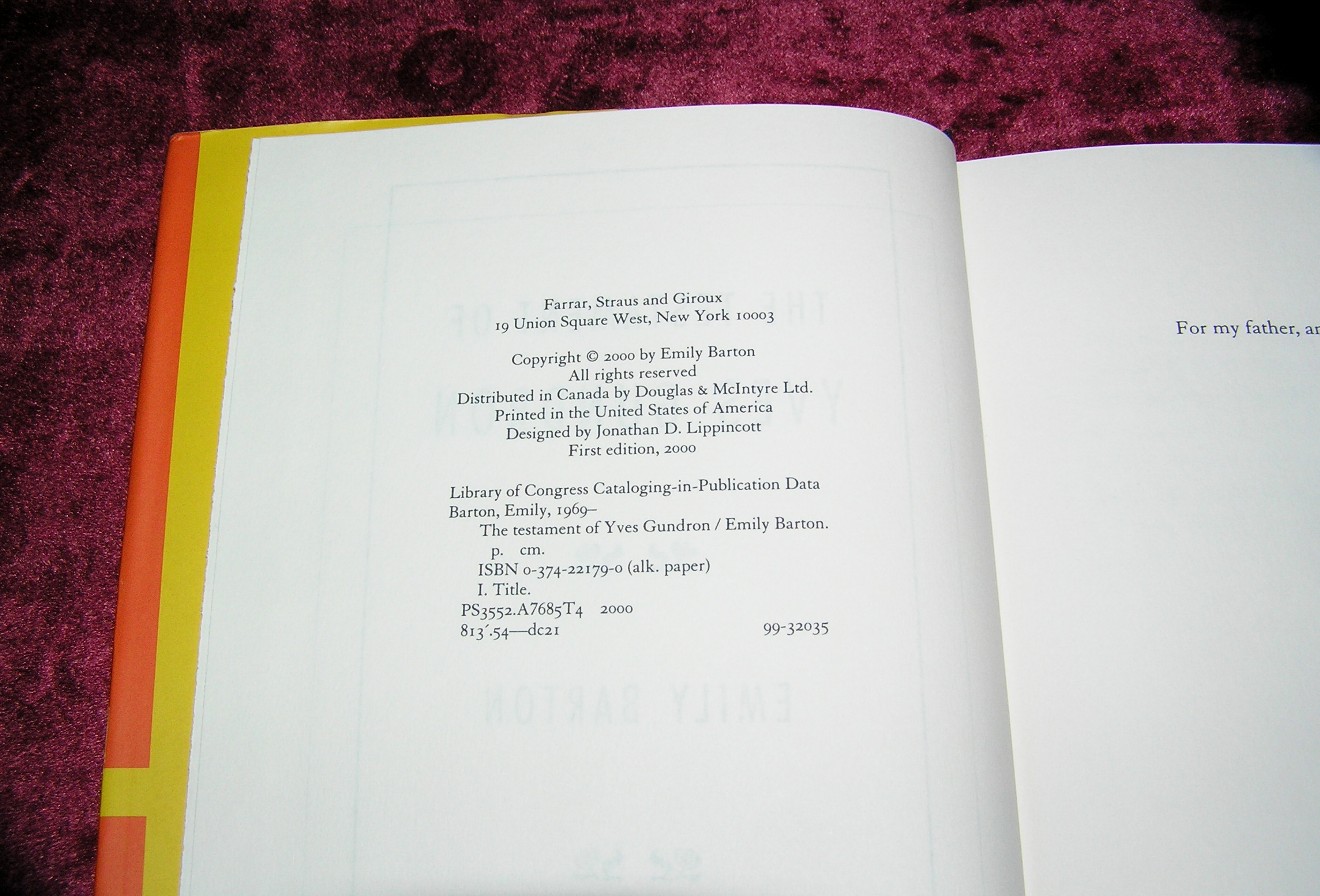 Farrar, Straus and Giroux
19 Union Square West, New York 10003
Copyright © 2000 by Emily Barton
All rights reserved
Distributed in Canada by Douglas & McIntyre Ltd.
Printed in the United States of America
Designed by Jonathan D. Lippincott
First edition, 2000
Library of Congress Cataloging-in-Publication Data
Barton, Emily, 1969–
The testament of Yves Gundron / Emily Barton.
p. cm.
ISBN 0-374-22179-0 (alk. paper)
I. Title.
PS3552.A7685T4 2000
813´.54—dc21 99-32035
For my father,
EMILY BARTON